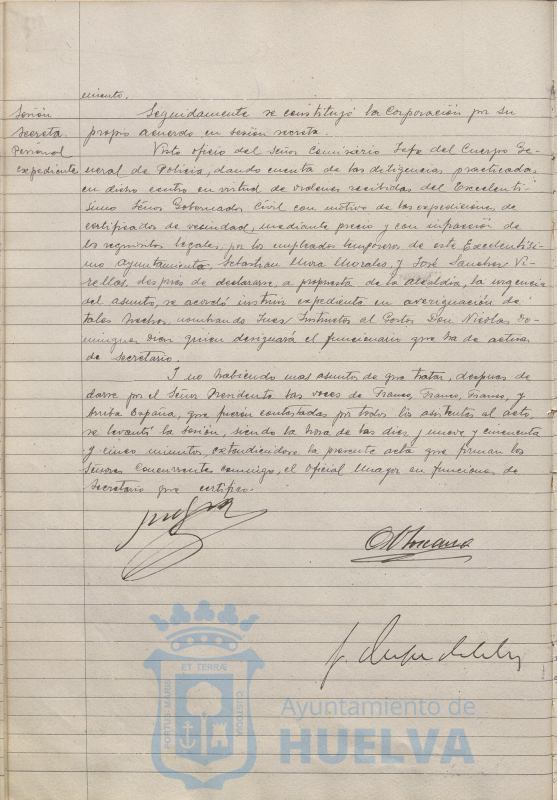 miento.
Sesión
Secreta.
Personal
expediente
Seguidamente se constituyó la Corporación por su
propio acuerdo en sesión secreta.
Visto oficio del Señor Comisario Jefe del Cuerpo Ge-
neral de Policia, dando cuenta de las diligencias practicadas
en dicho centro en virtud de ordenes recibidas del Excelentí-
simo Señor Gobernador Civil con motivo de las expediciones de
certificados de vecindad, mediante precio y con infracción de
los requisitos legales, por los empleados temporeros de este Excelentísi-
mo Ayuntamiento, Sebastian Mora Morales, y José Sanchez Vi-
rellas, después de declararse, a propuesta de la Alcaldía, la urgencia
del asunto, se acordó instruir expediente en averiguación de
tales hechos, nombrando Juez Instructor al Gestor Don Nicolas Do-
minguez Diaz quien designará el funcionario que ha de actuar
de secretario.
Y no habiendo mas asuntos de que tratar, despues de
darse por el Señor Presidente las voces de Franco, Franco, Franco, y
Arriba España, que fueron contestadas por todos los asistentes al acto,
se levantó la sesión, siendo la hora de las diez y nueve y cincuenta
y cinco minutos, extendiendose la presente acta que firman los
señores concurrentes conmigo, el Oficial Mayor en funciones de
Secretario que certifico.
ET TERRÆ
PORTUS MARIS
CUSTODIA
Ayuntamiento de
HUELVA